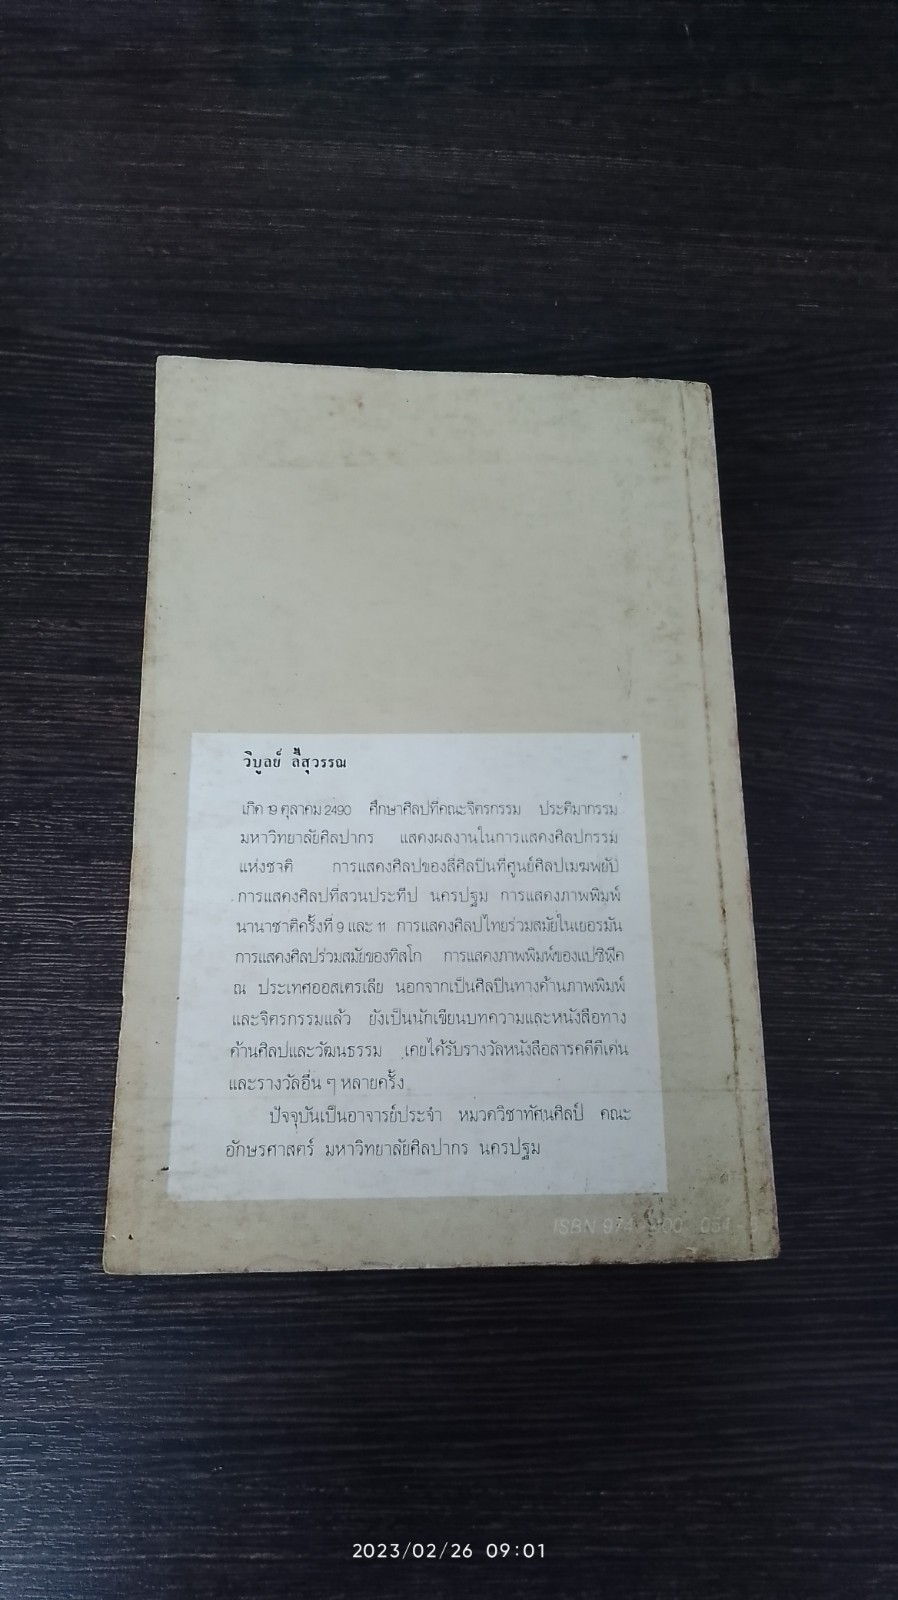 วิบูลย์ ลี้สุวรรณ
เกิด 19 ตุลาคม 2490 ศึกษาศิลปที่คณะจิตรกรรม ประติมากรรม
มหาวิทยาลัยศิลปากร แสดงผลงานในการแสดงศิลปกรรม
แห่งชาติ การแสดงศิลปของสี่ศิลปินที่ศูนย์ศิลปเมฆพยับ
การแสดงศิลปที่สวนประทีป นครปฐม การแสดงภาพพิมพ์
นานาชาติครั้งที่ 9 และ 11 การแสดงศิลปไทยร่วมสมัยในเยอรมัน
การแสดงศิลปร่วมสมัยของทิสโก การแสดงภาพพิมพ์ของแปซิฟิค
ณ ประเทศออสเตรเลีย นอกจากเป็นศิลปินทางด้านภาพพิมพ์
และจิตรกรรมแล้ว ยังเป็นนักเขียนบทความและหนังสือทาง
ด้านศิลปและวัฒนธรรม เคยได้รับรางวัลหนังสือสารคดีดีเด่น
และรางวัลอื่น ๆ หลายครั้ง
ปัจจุบันเป็นอาจารย์ประจำ หมวดวิชาทัศนศิลป์ คณะ
อักษรศาสตร์ มหาวิทยาลัยศิลปากร นครปฐม
ISBN 974
2023/02/26 09:01